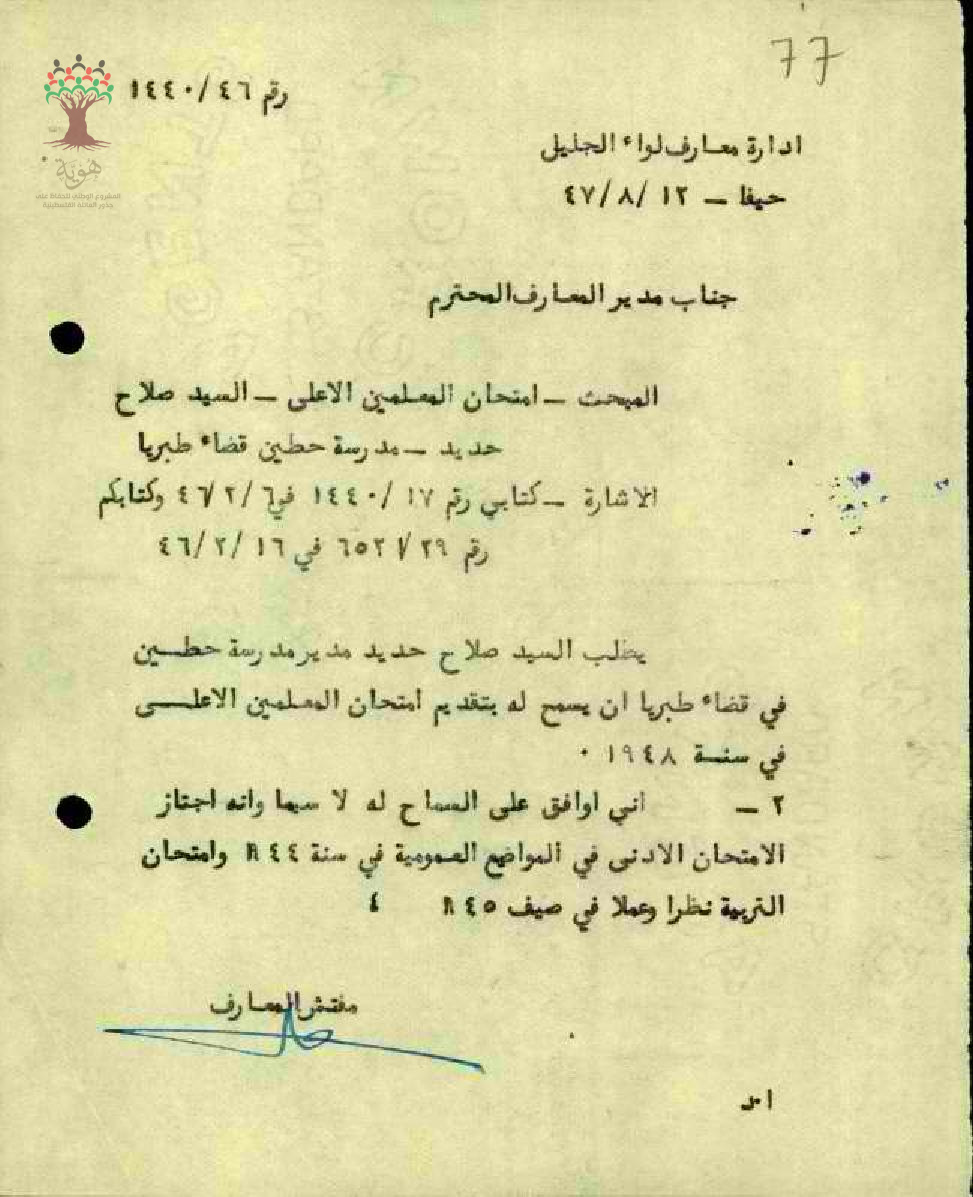 77
رقم ١٤٤٠/٤٦
هوية
المشروع الوطني للحفاظ على
جذور العائلة الفلسطينية
ادارة معارف لواء الجليل
حيفا – ٤٧/٨/١٢
جناب مدير المعارف المحترم
المبحث – امتحان المعلمين الاعلى – السيد صلاح
حديد – مدرسة حطين قضاء طبريا
الاشارة – كتابي رقم ١٤٤٠/١٧ في ٤٦/٢/٦ وكتابكم
رقم ٦٥٢١/٢٩ في ٤٦/٢/١٦
يطلب السيد صلاح حديد مدير مدرسة حطين
في قضاء طبريا ان يسمح له بتقديم امتحان المعلمين الاعلى
في سنة ١٩٤٨ ٠
٢ – اني اوافق على السماح له لا سيما وانه اجتاز
الامتحان الادنى في المواضع العمومية في سنة ١٩٤٤ وامتحان
التربية نظرا وعملا في صيف ١٩٤٥ ٤
مفتش المعارف